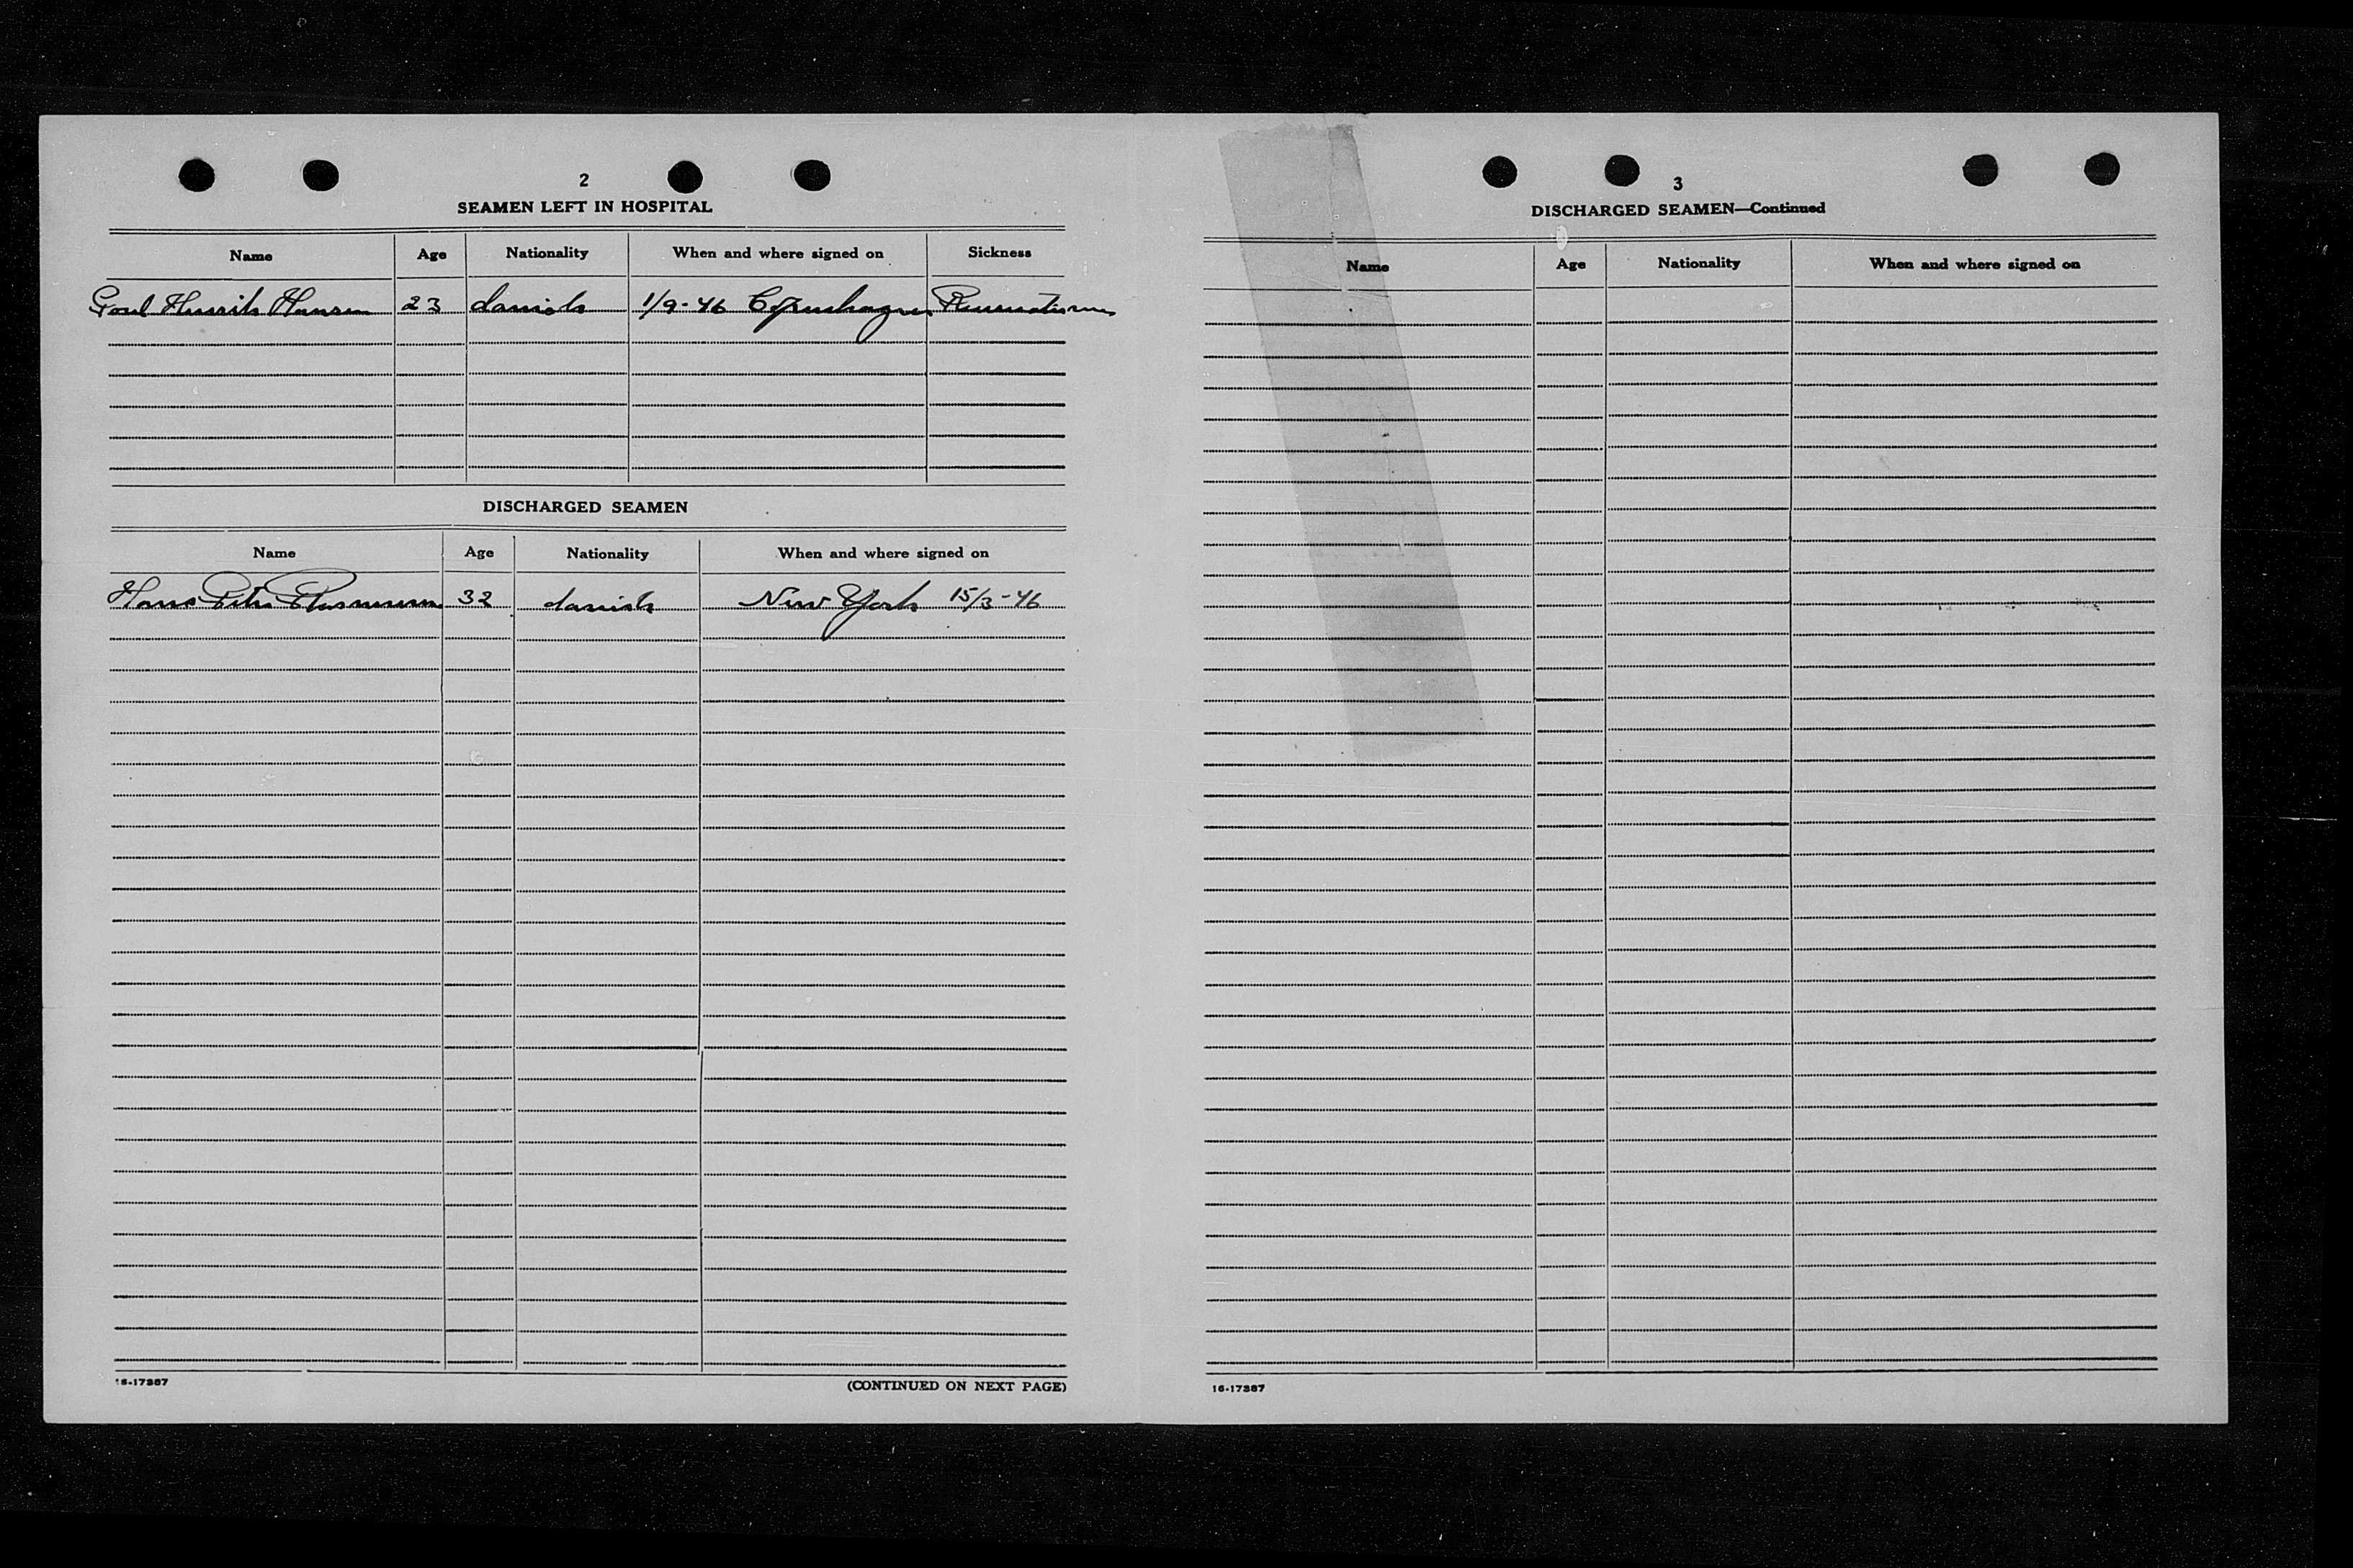 2
SEAMEN LEFT IN HOSPITAL
Name Age Nationality When and where signed on Sickness
Poul Henrik Hansen 23 danish 1/9-46 Copenhagen Reumatisme
DISCHARGED SEAMEN
Name Age Nationality When and where signed on
Hans Peter Rasmussen 32 danish New York 15/3-46
16-17387
(CONTINUED ON NEXT PAGE)
3
DISCHARGED SEAMEN—Continued
Name Age Nationality When and where signed on
16-17387